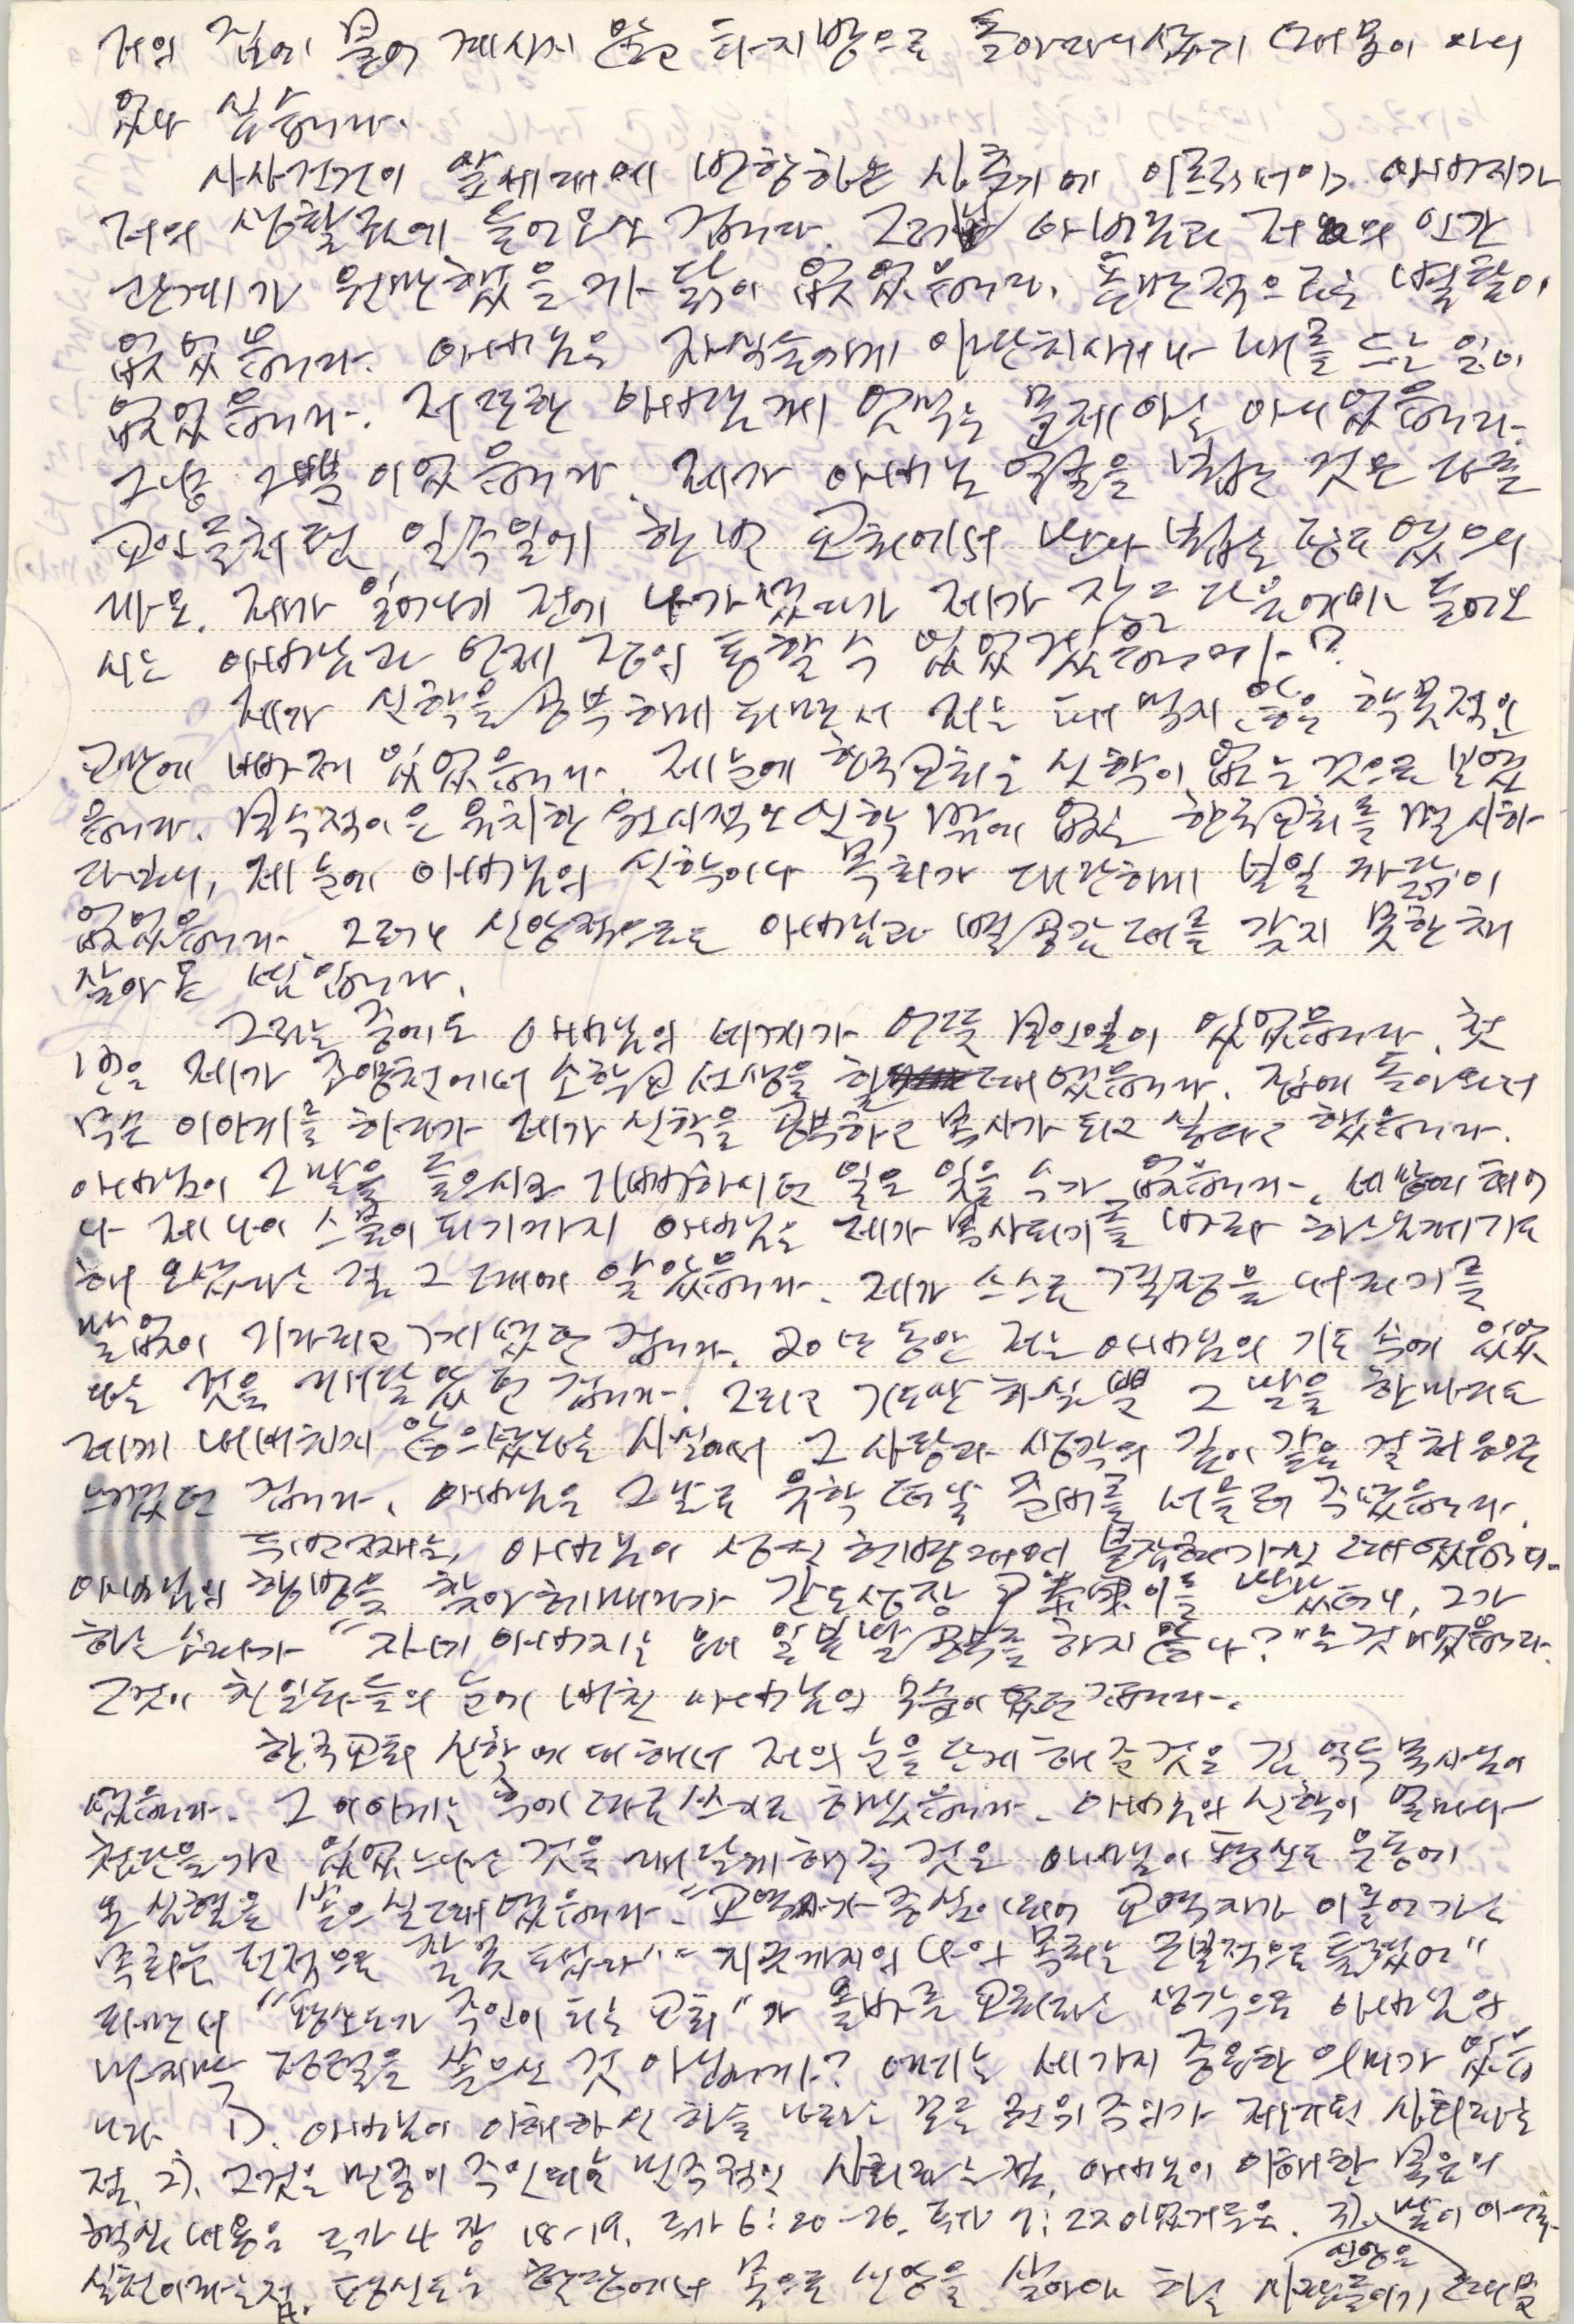 거의 집에 붙어 계시지 않고 타지방으로 돌아다니셨기 때문이 아니
었나 싶습니다.
사사건건이 앞세대에 반항하는 사춘기에 이르러서야 아버지가
저의 생활권에 들어오신 겁니다. 그러니 아버님과 저와의 인간
관계가 원만했을 까닭이 없었읍니다. 표면적으로는 별탈이
없었읍니다. 아버님은 자식들에게 야단치시거나 매를 드는 일이
없었읍니다. 저 또한 아버님께 맞서는 문제아는 아니었읍니다.
그냥 그뿐이었읍니다. 제가 아버님 얼굴을 뵙는 것은 다른
교인들처럼 일주일에 한번 교회에서 만나 뵙는 정도였으니
까요. 제가 일어나기 전에 나가셨다가 제가 잠든 다음에야 들어오
시는 아버님과 언제 정이 통할 수 있었겠읍니까?
제가 신학을 공부하게 되면서 저는 때 멀지 않은 학문적인
교만에 빠져 있었읍니다. 제 눈에 한국교회는 신학이 없는 것으로 보였
읍니다. 보수적이은 유치한 원시적인 신학 밖에 없는 한국교회를 멸시하
다보니, 제 눈에 아버님의 신학이나 목회가 대단하게 보일 까닭이
없었읍니다. 그러니 신앙적으로도 아버님과 별 공감대를 갖지 못한 채
살아온 셈입니다.
그러는 중에도 아버님의 무게가 언뜻 보인 일이 있었읍니다. 첫
번은 제가 에서 소학교 선생을 할 때였읍니다. 집에 돌아와서
무슨 이야기를 하다가 제가 신학을 공부하고 목사가 되고 싶다고 했읍니다.
아버님이 그 말을 들으시고 기뻐하시던 일은 잊을 수가 없읍니다. 태어
나 제 나이 스물이 되기까지 아버님은 제가 목사되기를 바라 하느님께 기도
해 오셨다는 걸 그 때에 알았읍니다. 제가 스스로 결정을 내리기를
말없이 기다리고 계셨던 겁니다. 20년 동안 저는 아버님의 기도 속에 있었
다는 것을 깨달았던 겁니다. 그리고 기도만 하실 뿐 그 말을 한마디도
제게 내비치지 않으셨다는 사실에서 그 사랑과 생각의 깊이 같은 걸 처음으로
느꼈던 겁니다. 아버님은 그날로 유학 떠날 준비를 서둘러 주셨읍니다.
두번째는, 아버님이 성진 헌병대에 붙잡혀가신 때였읍니다.
아버님의 행방을 찾아 헤매다가 간도성장 이를 만났더니, 그가
하는 소리가 "자네 아버지는 왜 일본말 공부를 하지 않나?"는 것이었읍니다.
그것이 친일파들의 눈에 비친 아버님의 모습이었던 겁니다.
한국교회 신학에 대해서 저의 눈을 뜨게 해준 것은 김 익두 목사님이
었읍니다. 그 이야기는 후에 따로 쓰기로 하겠읍니다. 아버님의 신학이 얼마나
첨단을 가고 있었느냐는 것을 깨닫게 해준 것은 아버님이 평신도 운동에
온 심혈을 쏟으실 때였읍니다. "교역자가 중심이 되어 교역자가 이끌어가는
목회는 전적으로 잘못 됐다" "지금까지의 나의 목회는 근본적으로 틀렸어"
하면서 "평신도가 주인이 되는 교회"가 올바른 교회라는 생각으로 아버님의
마지막 정열을 쏟으신 것 아닙니까? 여기는 세가지 중요한 의미가 있읍
니다. 1). 아버님이 이해하신 하늘 나라는 모든 권위주의가 제거된 사회라는
점, 2). 그것은 민중이 주인되는 민주적인 사회라는 점, 아버님이 이해한 복음의
핵심 내용은 누가 4장 18-19, 누가 6:20-26, 누가 7:22이었거든요. 3). 말이 아니라
실천이라는 점. 평신도는 현장에서 몸으로 신앙을 살아야 하는 사람들이기 때문
신앙은